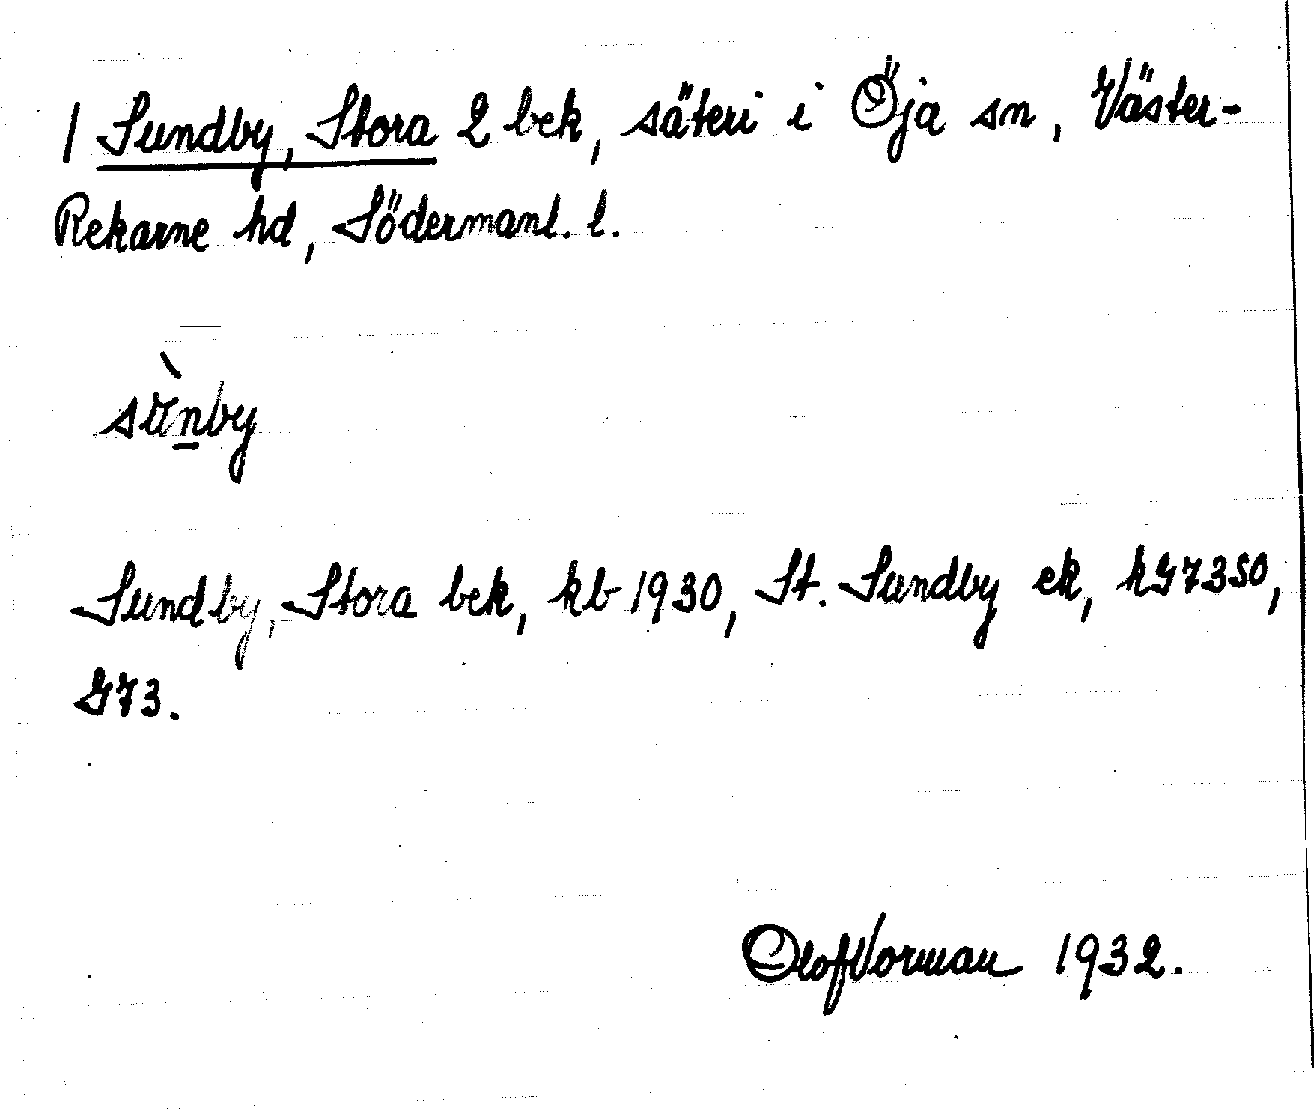 1 Sundby, Stora 2 bek, säteri i Öja sn, Väster-
Rekarne hd, Södermanl. l.
sùnby
Sundby, Stora bek, kb 1930, St. Sundby ek, k G73SO,
G73.
Olof Norman 1932.